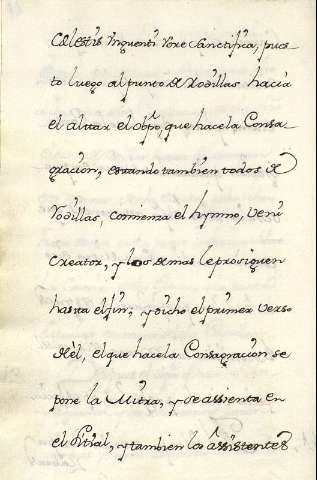 Cœlestis Unguenti Rore Sanctifica, pues-
to luego al punto de Rodillas hacia
el altar el obpo, que hace la Consa-
gracion, estando tambien todos de
Rodillas, comienza el hymno, Veni
Creator, y los demas le prosiguen
hasta el fin, y dicho el primer verso
del, el que hace la Consagracion se
pone la Mitra, y se assienta en
el sitial, y tambien los assistentes